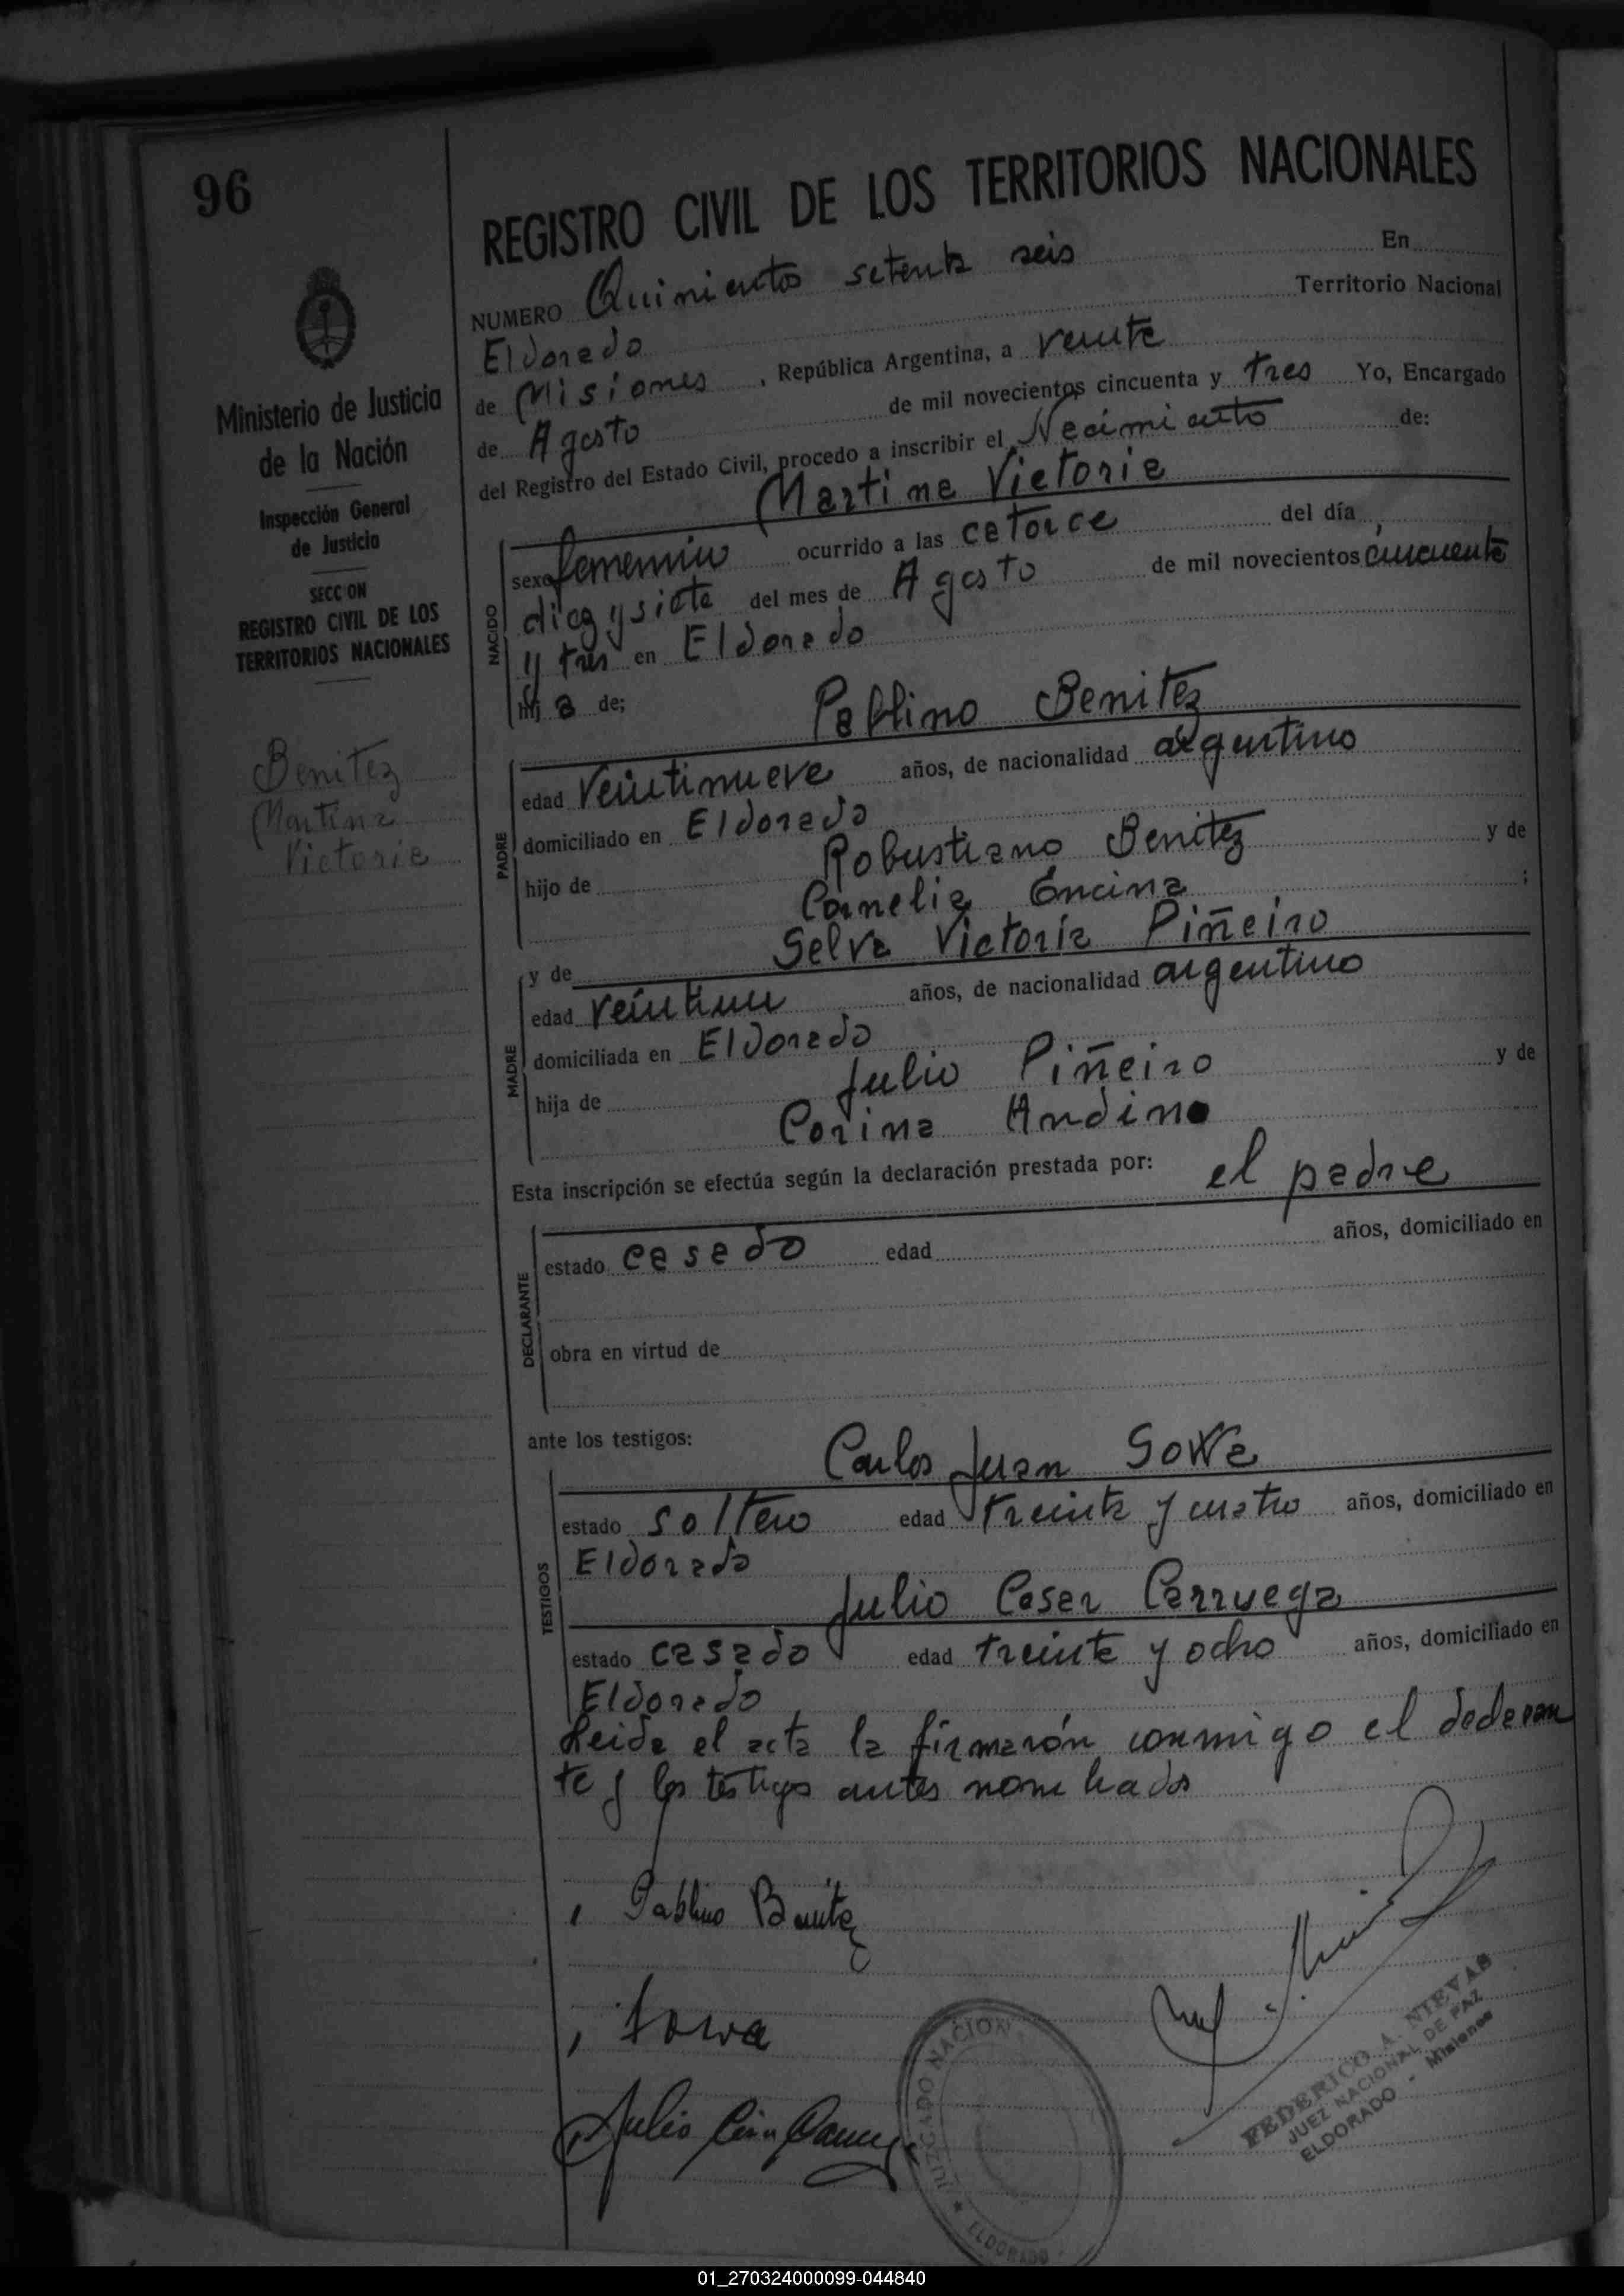 96
REGISTRO CIVIL DE LOS TERRITORIOS NACIONALES
Ministerio de Justicia
de la Nación
Inspección General
de Justicia
SECCION
REGISTRO CIVIL DE LOS
TERRITORIOS NACIONALES
Benitez
Martina
Victoria
NUMERO Quinientos setenta seis En
Eldorado Territorio Nacional
de Misiones, República Argentina, a veinte
de Agosto de mil novecientos cincuenta y tres Yo, Encargado
del Registro del Estado Civil, procedo a inscribir el Nacimiento de:
Martina Victoria
NACIDO
sexo femenino ocurrido a las catorce del día
diez y siete del mes de Agosto de mil novecientos cincuenta
y tres en Eldorado
hij a de;
Pablino Benitez
PADRE
edad veintinueve años, de nacionalidad argentino
domiciliado en Eldorado
hijo de Robustiano Benitez y de
Cornelia Encina ;
y de Selva Victoria Piñeiro
MADRE
edad veintiun años, de nacionalidad argentino
domiciliada en Eldorado
hija de Julio Piñeiro y de
Corina Andino
Esta inscripción se efectúa según la declaración prestada por: el padre
DECLARANTE
estado casado edad años, domiciliado en
obra en virtud de
ante los testigos:
Carlos Juan Sowa
TESTIGOS
estado soltero edad treinta y cuatro años, domiciliado en
Eldorado
Julio Cesar Carruega
estado casado edad treinta y ocho años, domiciliado en
Eldorado
Leida el acta la firmarón conmigo el declaran
te y los testigos antes nombrados
Pablino Benitez
Sowa
Julio
JUZGADO NACION
ELDORADO
FEDERICO A. NIEVAS
JUEZ NACIONAL DE PAZ
ELDORADO - Misiones
01_270324000099-044840